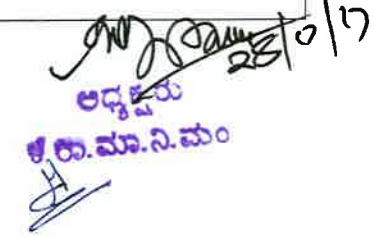 28/0/17
ಅಧ್ಯಕ್ಷರು
ಕ.ರಾ.ಮಾ.ನಿ.ಮಂ